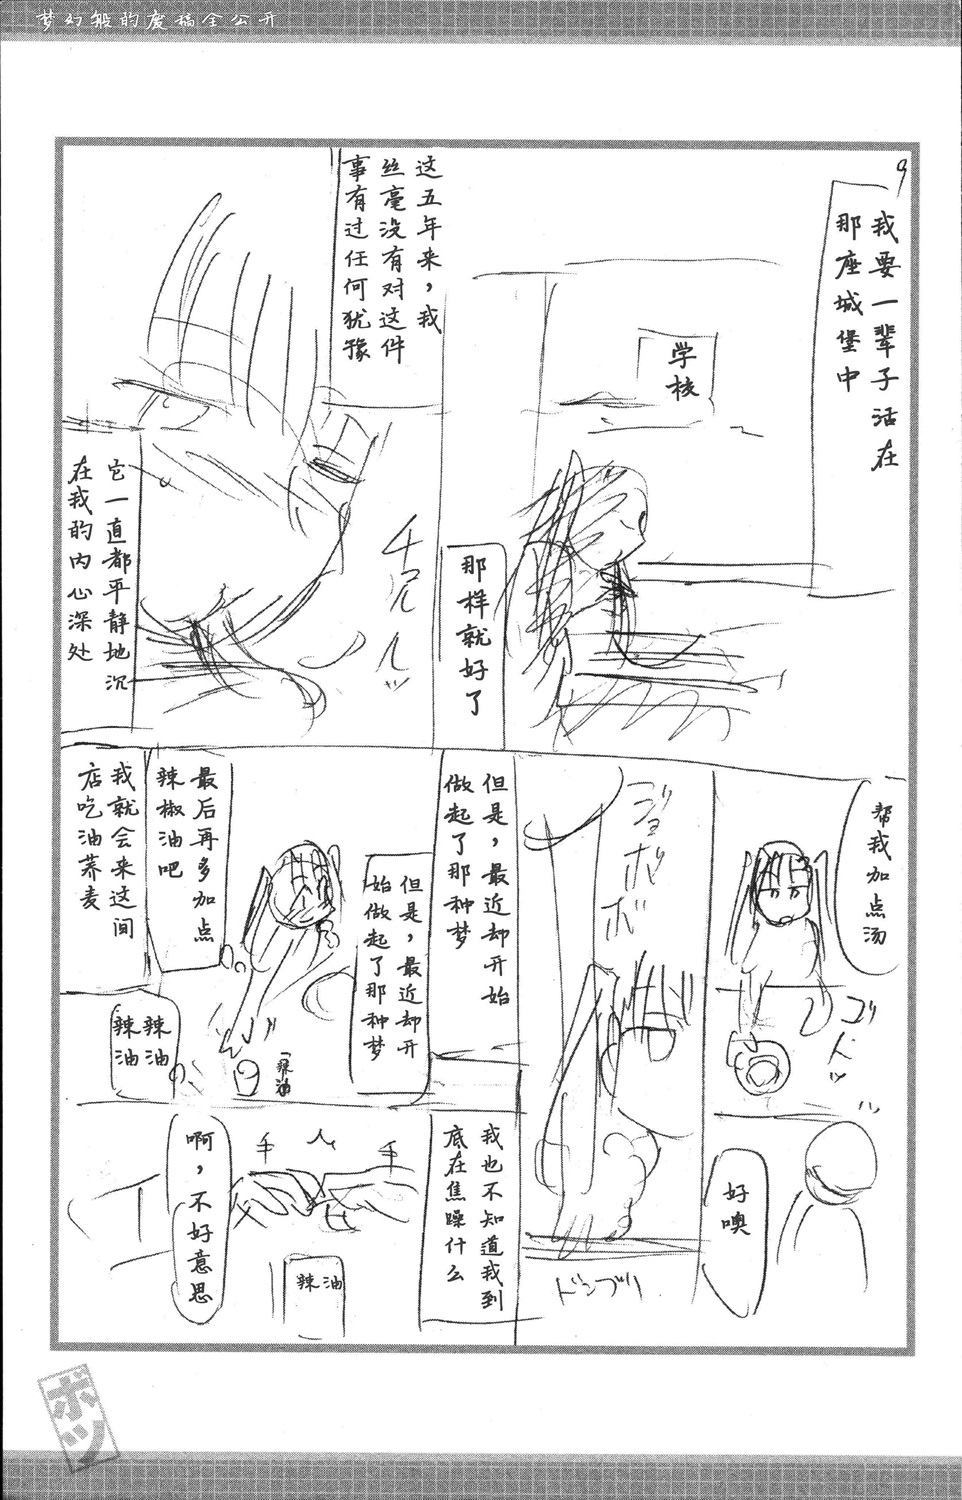 梦幻般的废稿全公开
9
我要一辈子活在
那座城堡中
学
校
那样就好了
这五年来，我
丝毫没有对这件
事有过任何犹豫
它一直都平静地沉
在我的内心深处
帮我加点汤
好噢
ジョボボボ
ドンブリ
但是，最近却开始
做起了那种梦
但是，最近却开
始做起了那种梦
最后再多加点
辣椒油吧
我就会来这间
店吃油荞麦
辣油
辣油
辣油
我也不知道我到
底在焦躁什么
手
手
辣油
啊，不好意思
ボツ